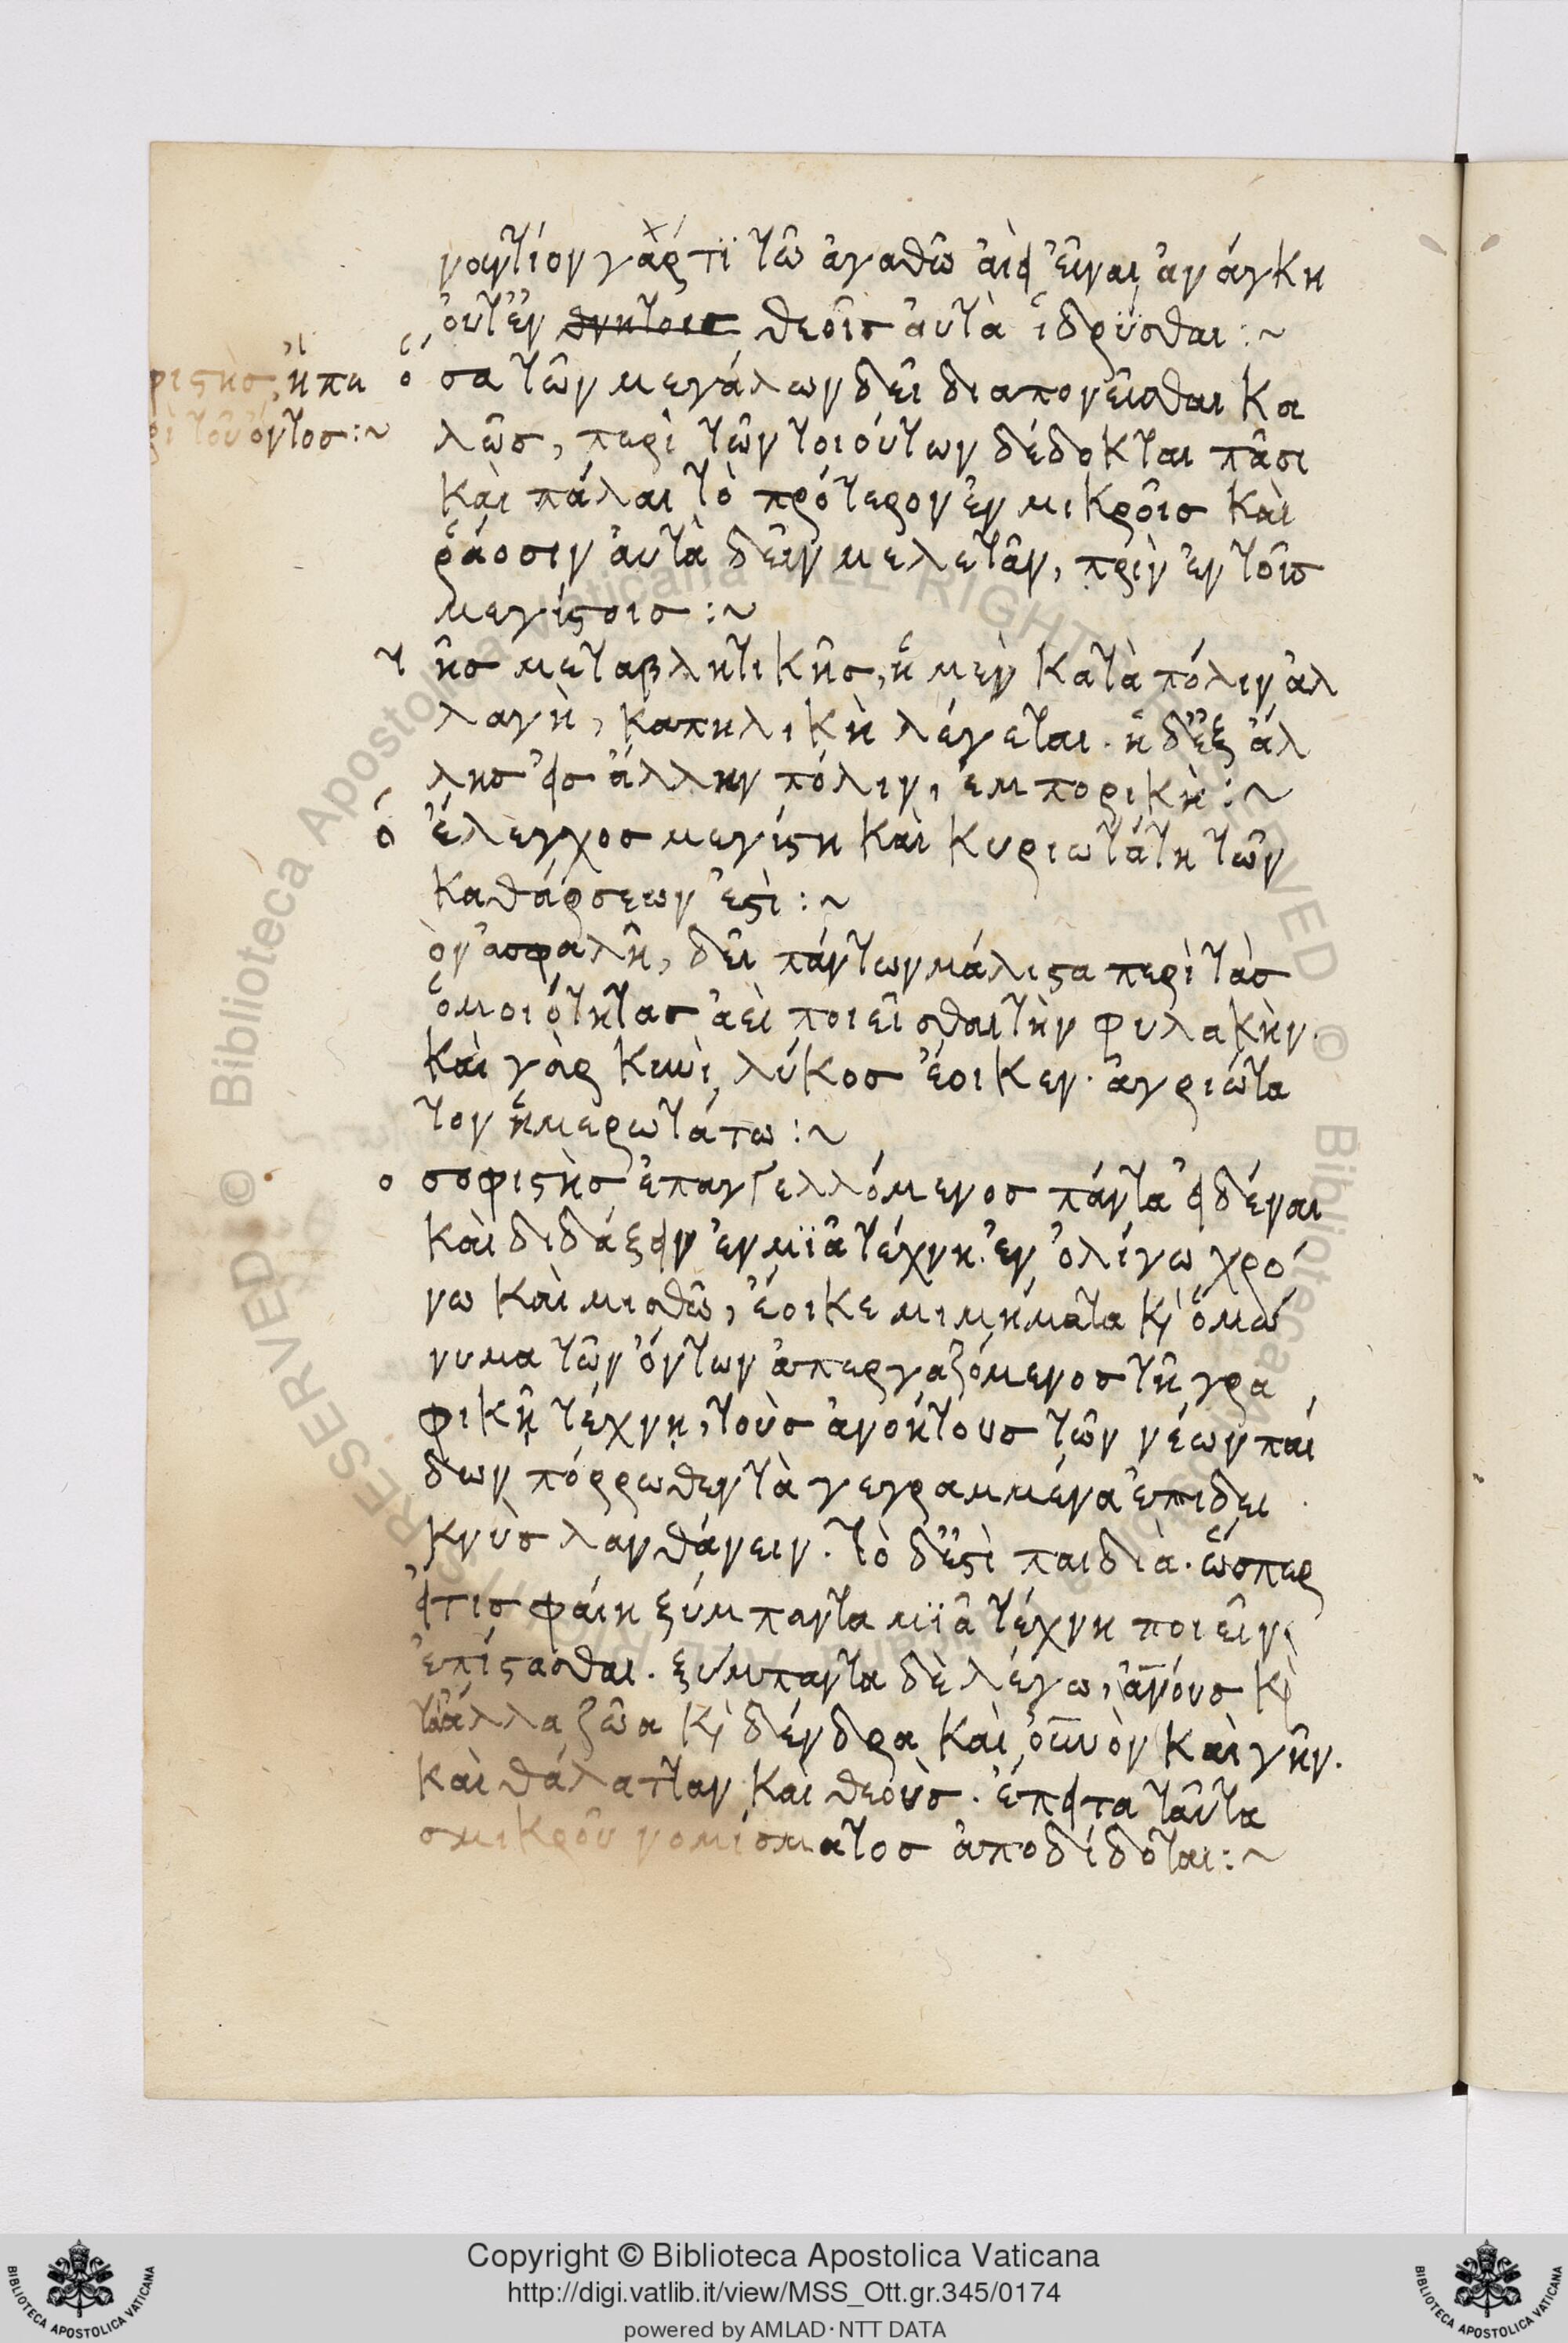 ναντίον γὰρ τϊ τῶ ἀγαθῶ ἀεὶ εἶναι ἀνάγκη
οὔτ' ἐν θνητοισ θεοῖσ ἀυτὰ ἱδρῦσθαι :~
ὅσα τῶν μεγάλων δεῖ διαπονεῖσθαι κα
λῶσ, περὶ τῶν τοιούτων δέδοκται πᾶσι
καὶ πάλαι τὸ πρότερον ἐν μικροῖσ καὶ
ῥάοσιν ἀυτὰ δεῖν μελετᾶν, πρὶν ἐν τοῖσ
μεγίστοισ :~
τῆσ μεταβλητικῆσ, ἡ μὲν κατὰ πόλιν ἀλ
λαγὴ, καπηλικὴ λέγεται. ἡ δ' ἐξ ἄλ
λησ εἰσ ἄλλην πόλιν, ἐμπορικὴ :~
ὁ ἔλεγχοσ μεγίστη καὶ κυριωτάτη τῶν
καθάρσεων ἐστὶ :~
ὸν ἀσφαλῆ, δεῖ πάντων μάλιστα περὶ τὰσ
ὁμοιότητασ ἀεὶ ποιεῖσθαι τὴν φυλακὴν.
καὶ γὰρ κυνὶ λύκοσ ἔοικεν. ἀγριώτα
τον ἡμερωτάτω :~
ο σοφιστὴσ ἐπαγγελλόμενοσ πάντα εἰδέναι
καὶ διδάξειν ἐν μϊᾶ τέχνη. ἐν ὀλίγω χρό
νω καὶ μισθῶ, ἔοικε μιμήματα κὶ ὁμώ
νυμα τῶν ὄντων ἀπεργαζόμενοσ τῆ γρα
φικῆ τέχνη, τοὺσ ἀνοήτουσ τῶν νέων παί
δων πόρρωθεν τὰ γεγραμμένα ἐπιδει
κνὺσ λανθάνειν. τὸ δ' ἐστὶ παιδιὰ. ὥσπερ
εἴ τισ φάιη ξύμπαντα μϊᾶ τέχνη ποιεῖν
ἐπίστασθαι. ξύμπαντα δὲ λέγω, ἀν̅ουσ κὶ
τἆλλα ζῶα κὶ δένδρα καὶ οὐ̅νὸν καὶ γῆν.
καὶ θάλατταν καὶ θεοὺσ. ἔπειτα ταῦτα
σμικροῦ νομίσματοσ ἀποδίδοται :~
φιστὴσ, ἢ πε
ρὶ τοῦ ὄντοσ :~
Copyright © Biblioteca Apostolica Vaticana
http://digi.vatlib.it/view/MSS_Ott.gr.345/0174
powered by AMLAD·NTT DATA